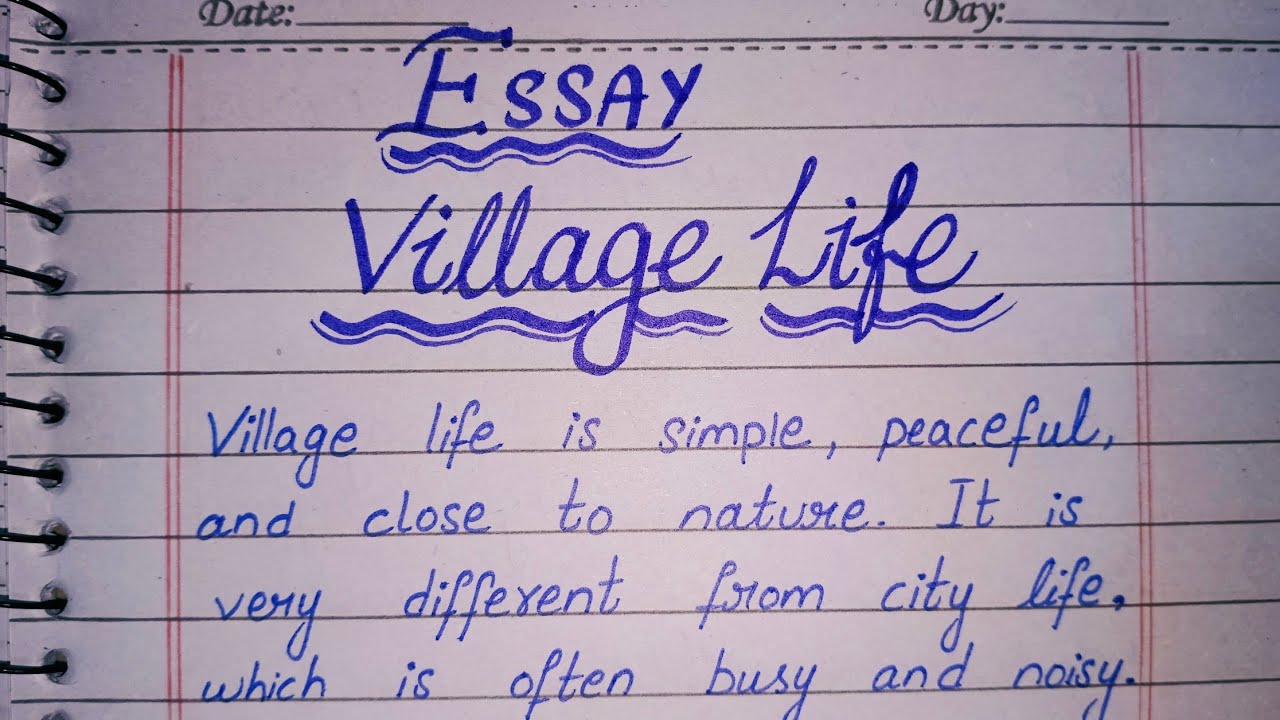 Date:
Day:
ESSAY
Village Life
Village life is simple, peaceful,
and close to nature. It is
very different from city life,
which is often busy and noisy.